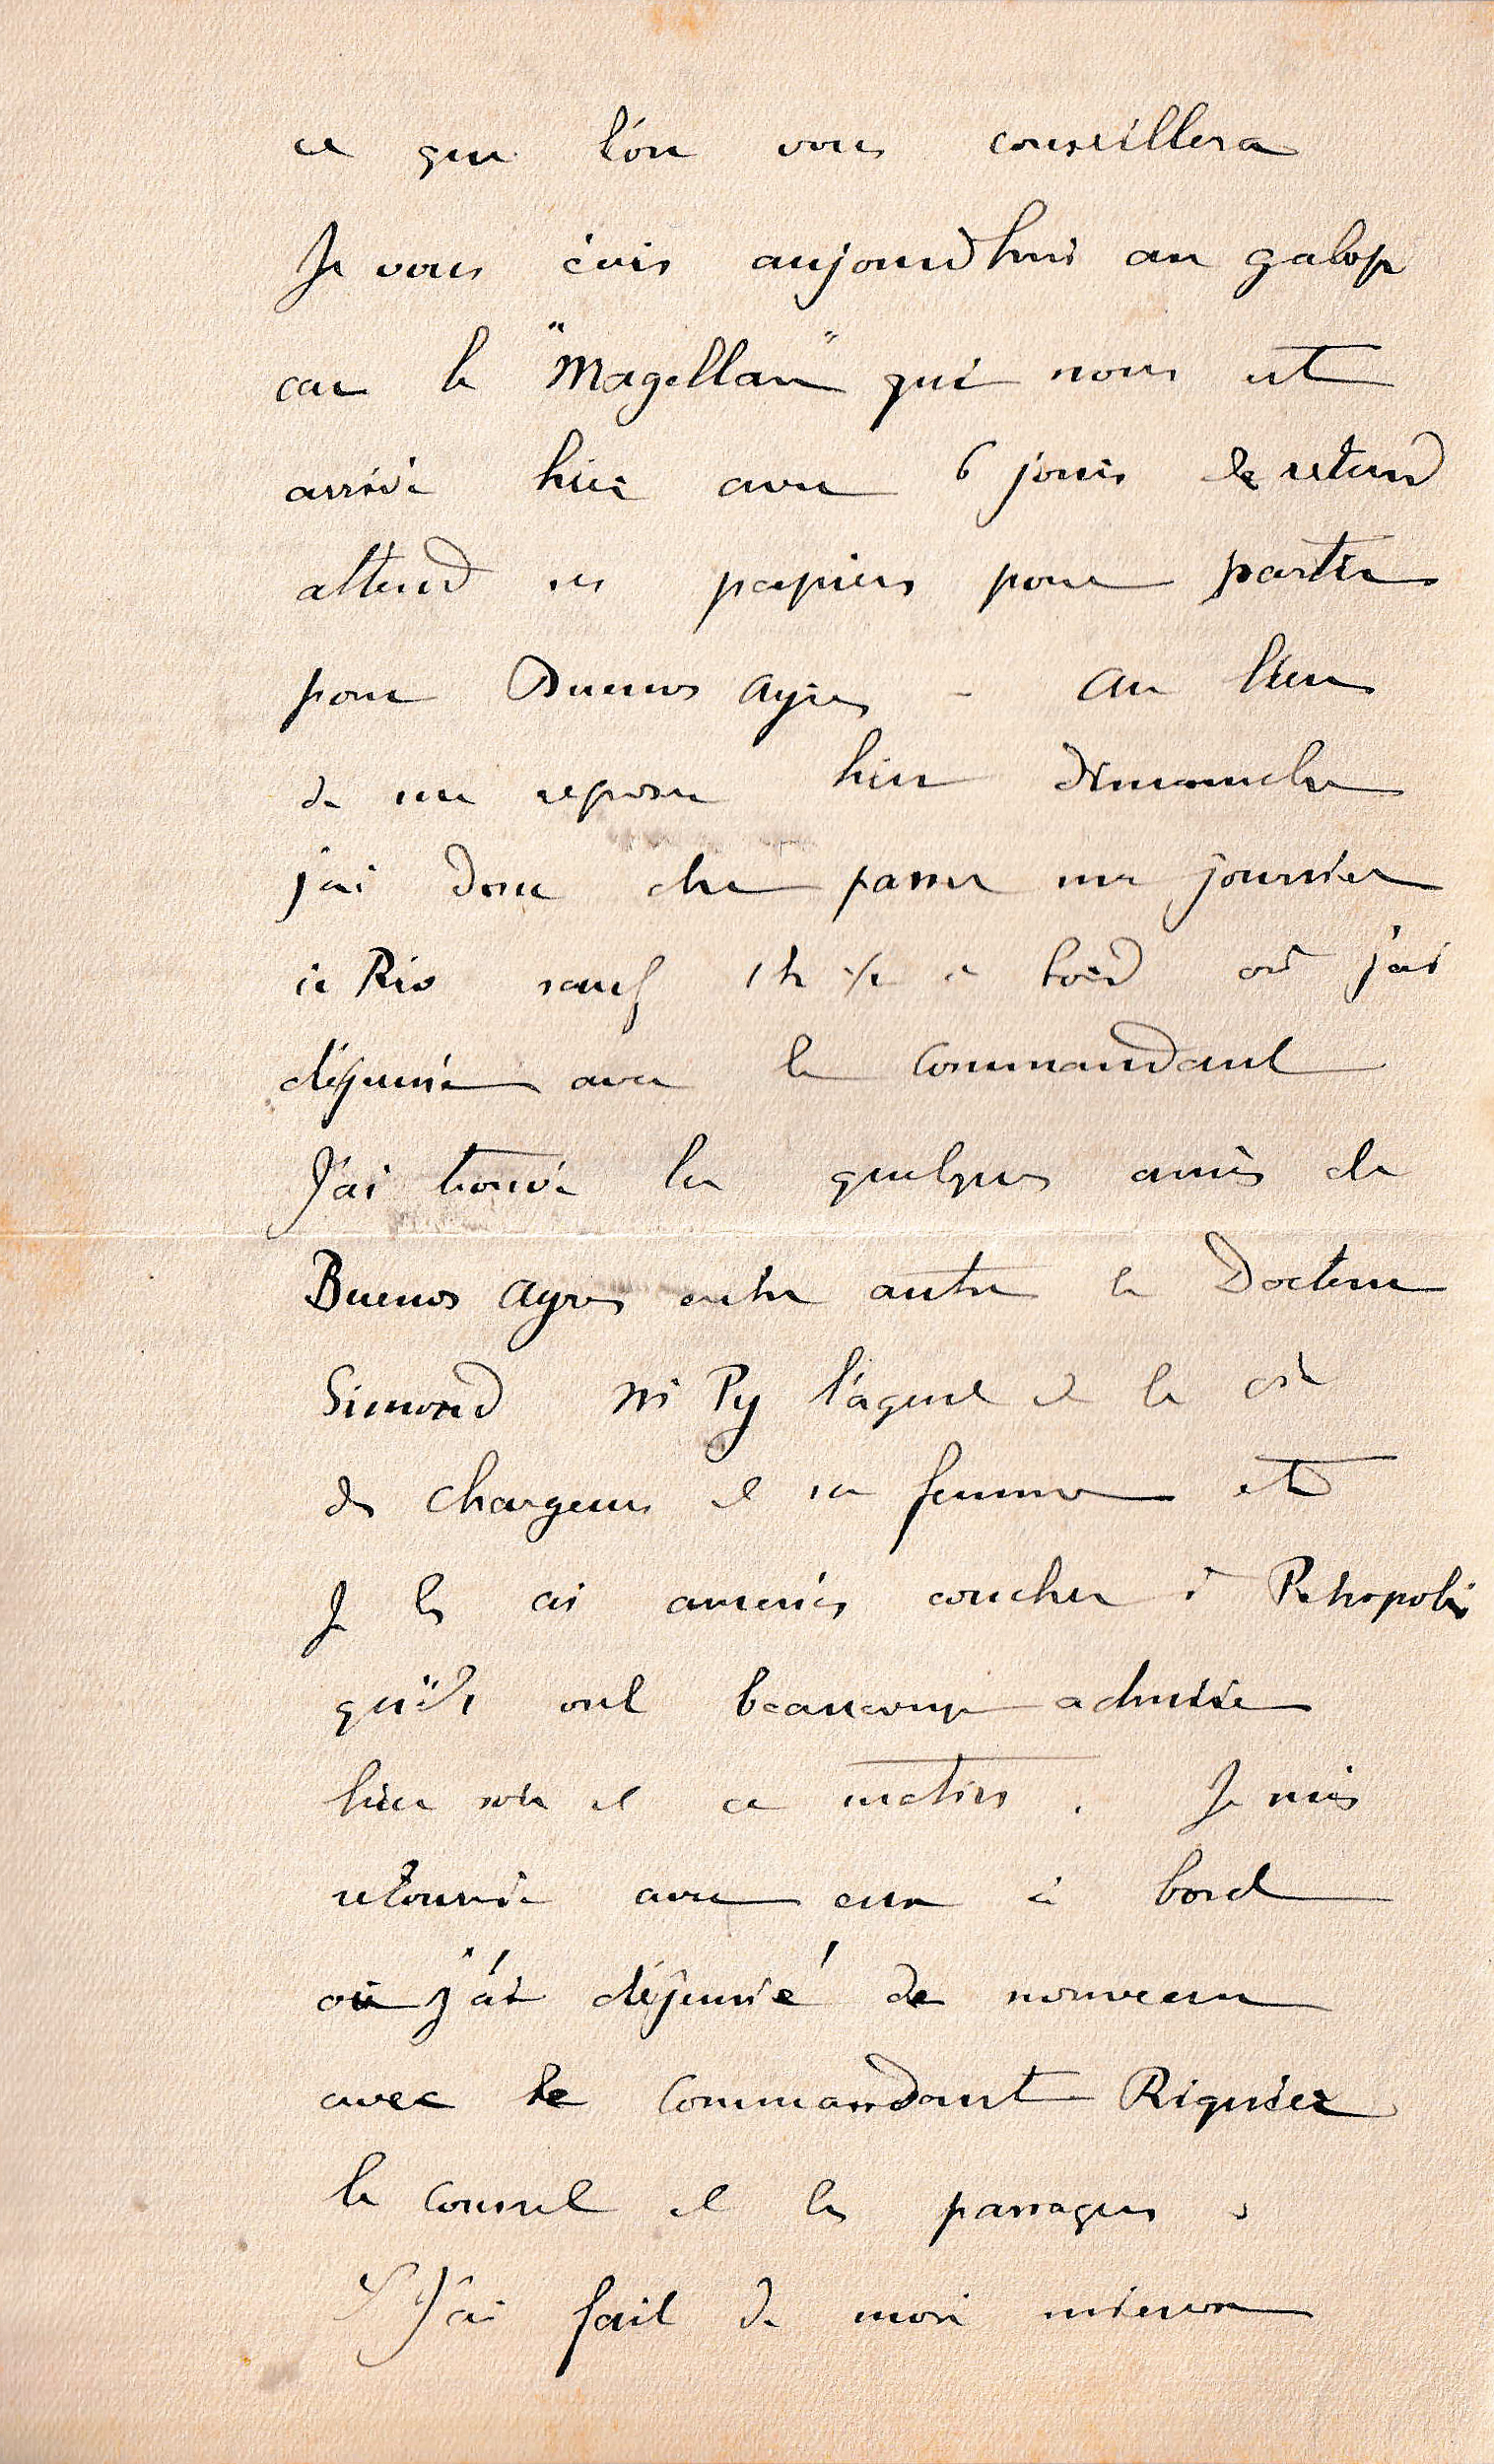 ce que l'on vous conseillera
Je vous écris aujourd'hui au galop
car le "Magellan" qui nous est
arrivé hier avec 6 jours de retard
attend ses papiers pour partir
pour Buenos Ayres - Au lieu
de me reposer hier dimanche
j'ai donc dû passer ma journée
à Rio sauf 1h 1/2 à bord où j'ai
déjeuné avec le Commandant
J'ai trouvé là quelques amis de
Buenos Ayres entre autre le Docteur
Simond Mr Py l'agent de la Cie
des chargeurs et sa femme et
Je les ai amenés coucher à Petropolis
qu'ils ont beaucoup admiré
hier soir et ce matin. Je suis
retourné avec eux à bord
où j'ai déjeuné de nouveau
avec le Commandant Riquier
le Consul et les passagers
J'ai fait de mon mieux